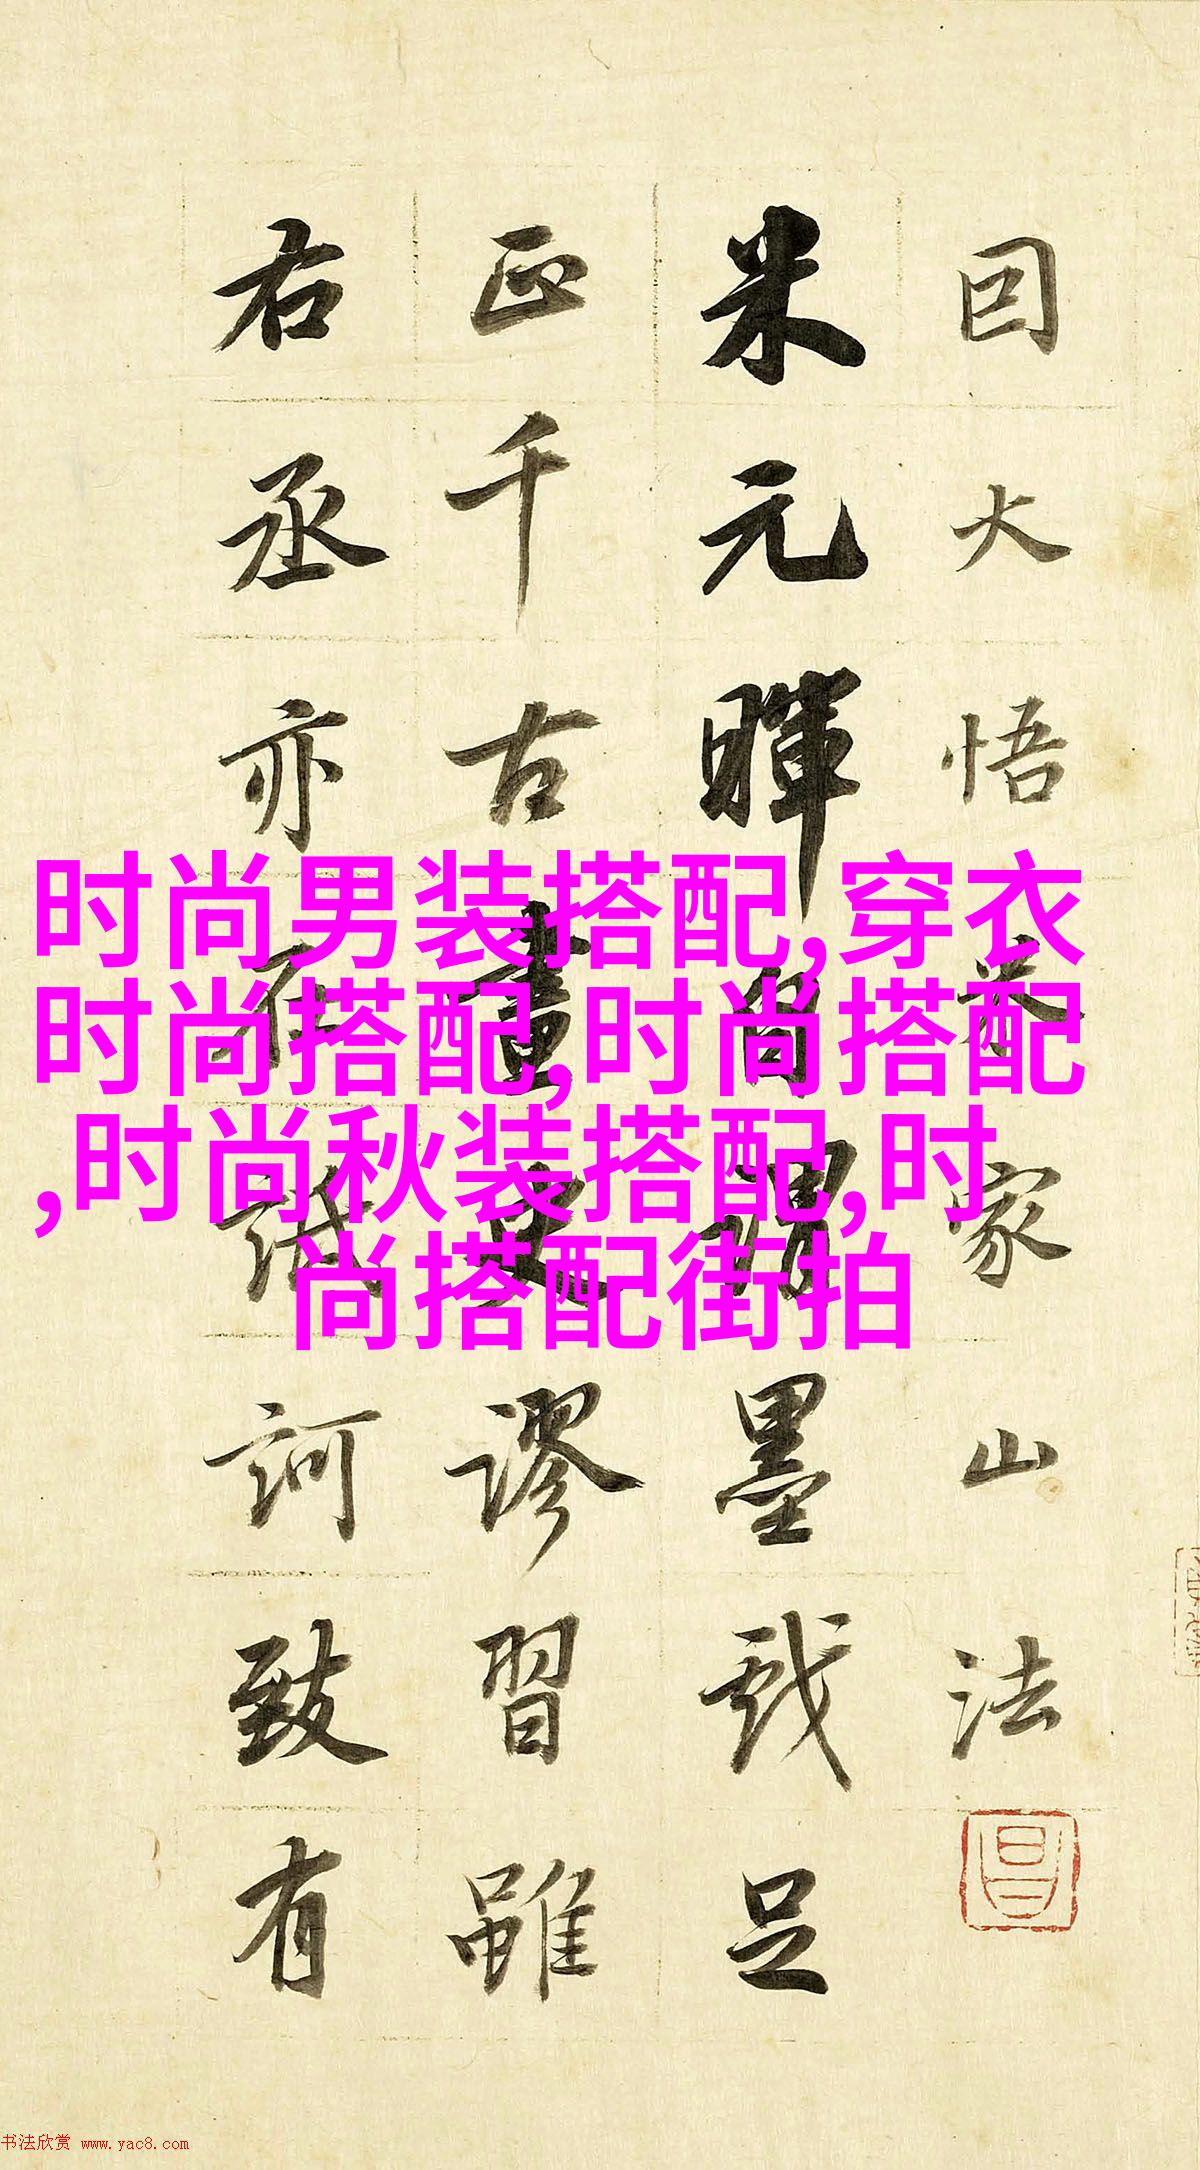 因大悟米家山法
米元暉嘗謂墨戲足
正千古畫史謬習雖
右丞亦在詆訶致有
时尚男装搭配,穿衣
时尚搭配,时尚搭配
,时尚秋装搭配,时
尚搭配街拍
书法欣赏 www.yac8.com